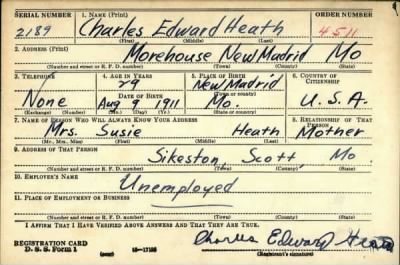 SERIAL NUMBER 1. NAME (Print) ORDER NUMBER
2189 Charles Edward Heath 4511
(First) (Middle) (Last)
2. ADDRESS (Print)
Morehouse New Madrid Mo
(Number and street or R. F. D. number) (Town) (County) (State)
3. TELEPHONE 4. AGE IN YEARS 5. PLACE OF BIRTH 6. COUNTRY OF CITIZENSHIP
29 New Madrid
DATE OF BIRTH (Town or county)
None Aug 9 1911 Mo. U.S.A.
(Exchange) (Number) (Mo.) (Day) (Yr.) (State or country)
7. NAME OF PERSON WHO WILL ALWAYS KNOW YOUR ADDRESS 8. RELATIONSHIP OF THAT PERSON
Mrs. Susie Heath Mother
(Mr., Mrs., Miss) (First) (Middle) (Last)
9. ADDRESS OF THAT PERSON
Sikeston, Scott, Mo.
(Number and street or R. F. D. number) (Town) (County) (State)
10. EMPLOYER'S NAME
Unemployed
11. PLACE OF EMPLOYMENT OR BUSINESS
(Number and street or R. F. D. number) (Town) (County) (State)
I AFFIRM THAT I HAVE VERIFIED ABOVE ANSWERS AND THAT THEY ARE TRUE.
REGISTRATION CARD Charles Edward Heath
D. S. S. Form 1 (over) (Registrant's signature)